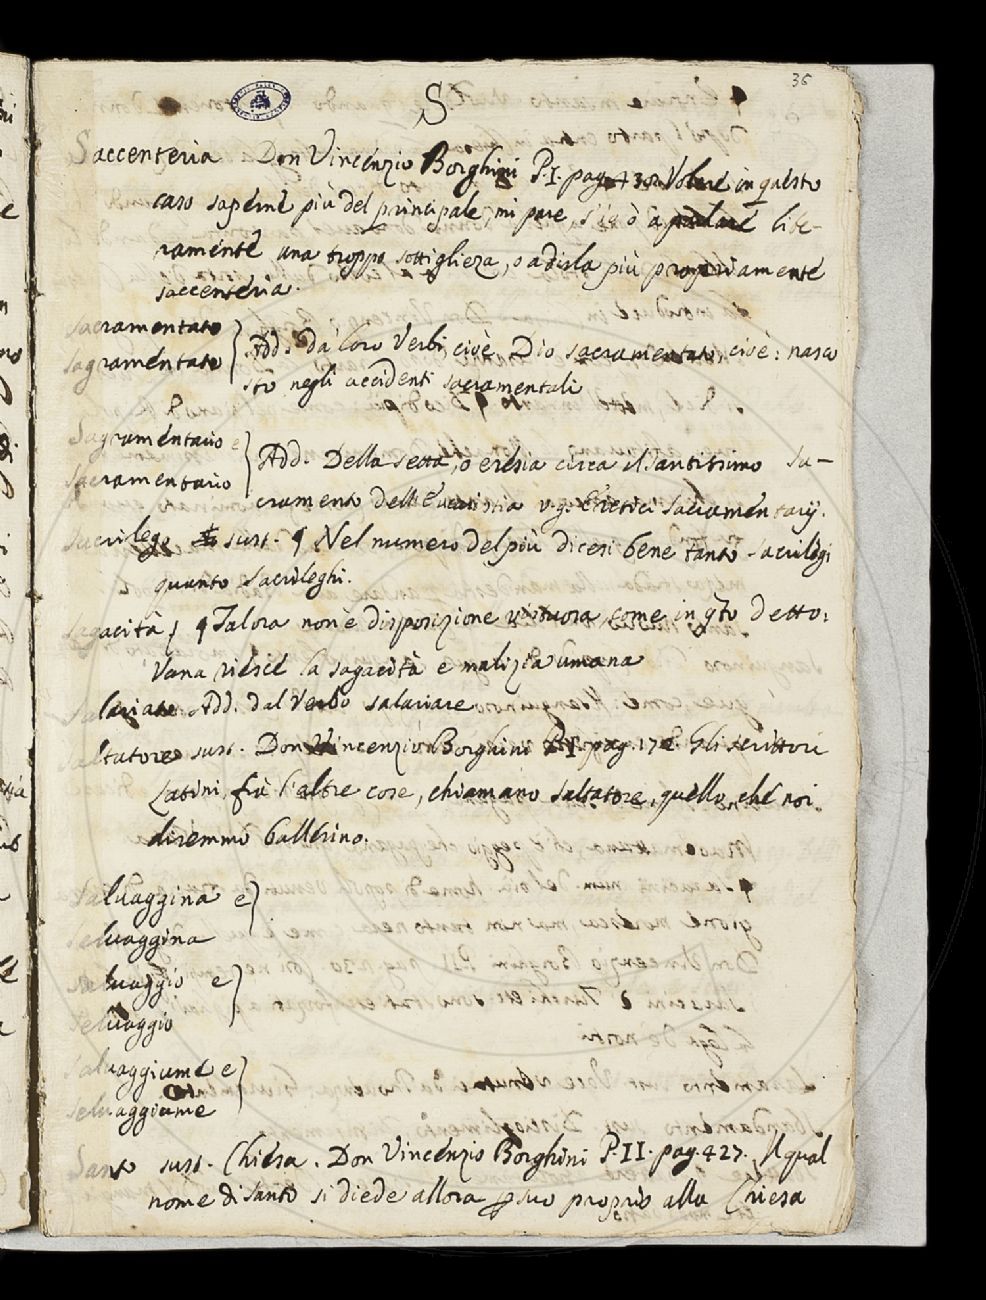 36
S
Saccenteria Don Vincenzio Borghini P.I. pag. 430. Volere in questo
caso saperne più del principale, mi pare, s'io ò a parlare libe-
ramente una troppo sottiglieza, o a dirla più propriamente
saccenteria.
Sacramentato
Sagramentato } Add. da loro Verbi, cioè Dio sacramentato, cioè: nasco
sto negli accidenti sacramentali
Sagramentario e
Sacramentario } Add. Della setta, o eresia circa il santissimo Sa-
cramento dell'Eucaristia v.g. Eretici Sacramentarij.
Sacrilego sust. ¶ Nel numero del più dicesi bene tanto sacrilegi
quanto sacrileghi.
Sagacità ¶ Talora non è disposizione virtuosa come in q̃to detto:
Vana riesce la sagacità e malizia umana
Salariato Add. dal Verbo salariare
Saltatore sust. Don Vincenzio Borghini P.I. pag. 172. Gli scrittori
Latini, frà l'altre cose, chiamano saltatore, quello, che noi
diremmo ballerino.
Salvaggina e }
Selvaggina
Salvaggio e }
Selvaggio
Salvaggiume e }
Selvaggiume
Santo sust. Chiesa. Don Vincenzio Borghini P.II. pag. 427. Il qual
nome di Santo si diede allora p suo proprio alla Chiesa